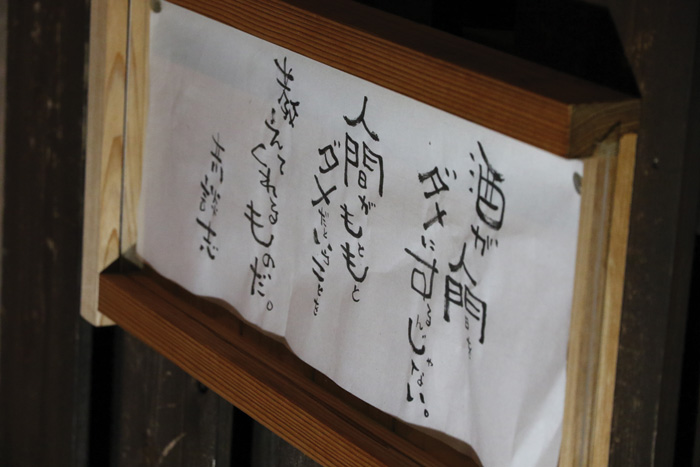 酒が人間を
ダメにするんじゃない。
人間がもともと
ダメだということを
教えてくれるものだ。